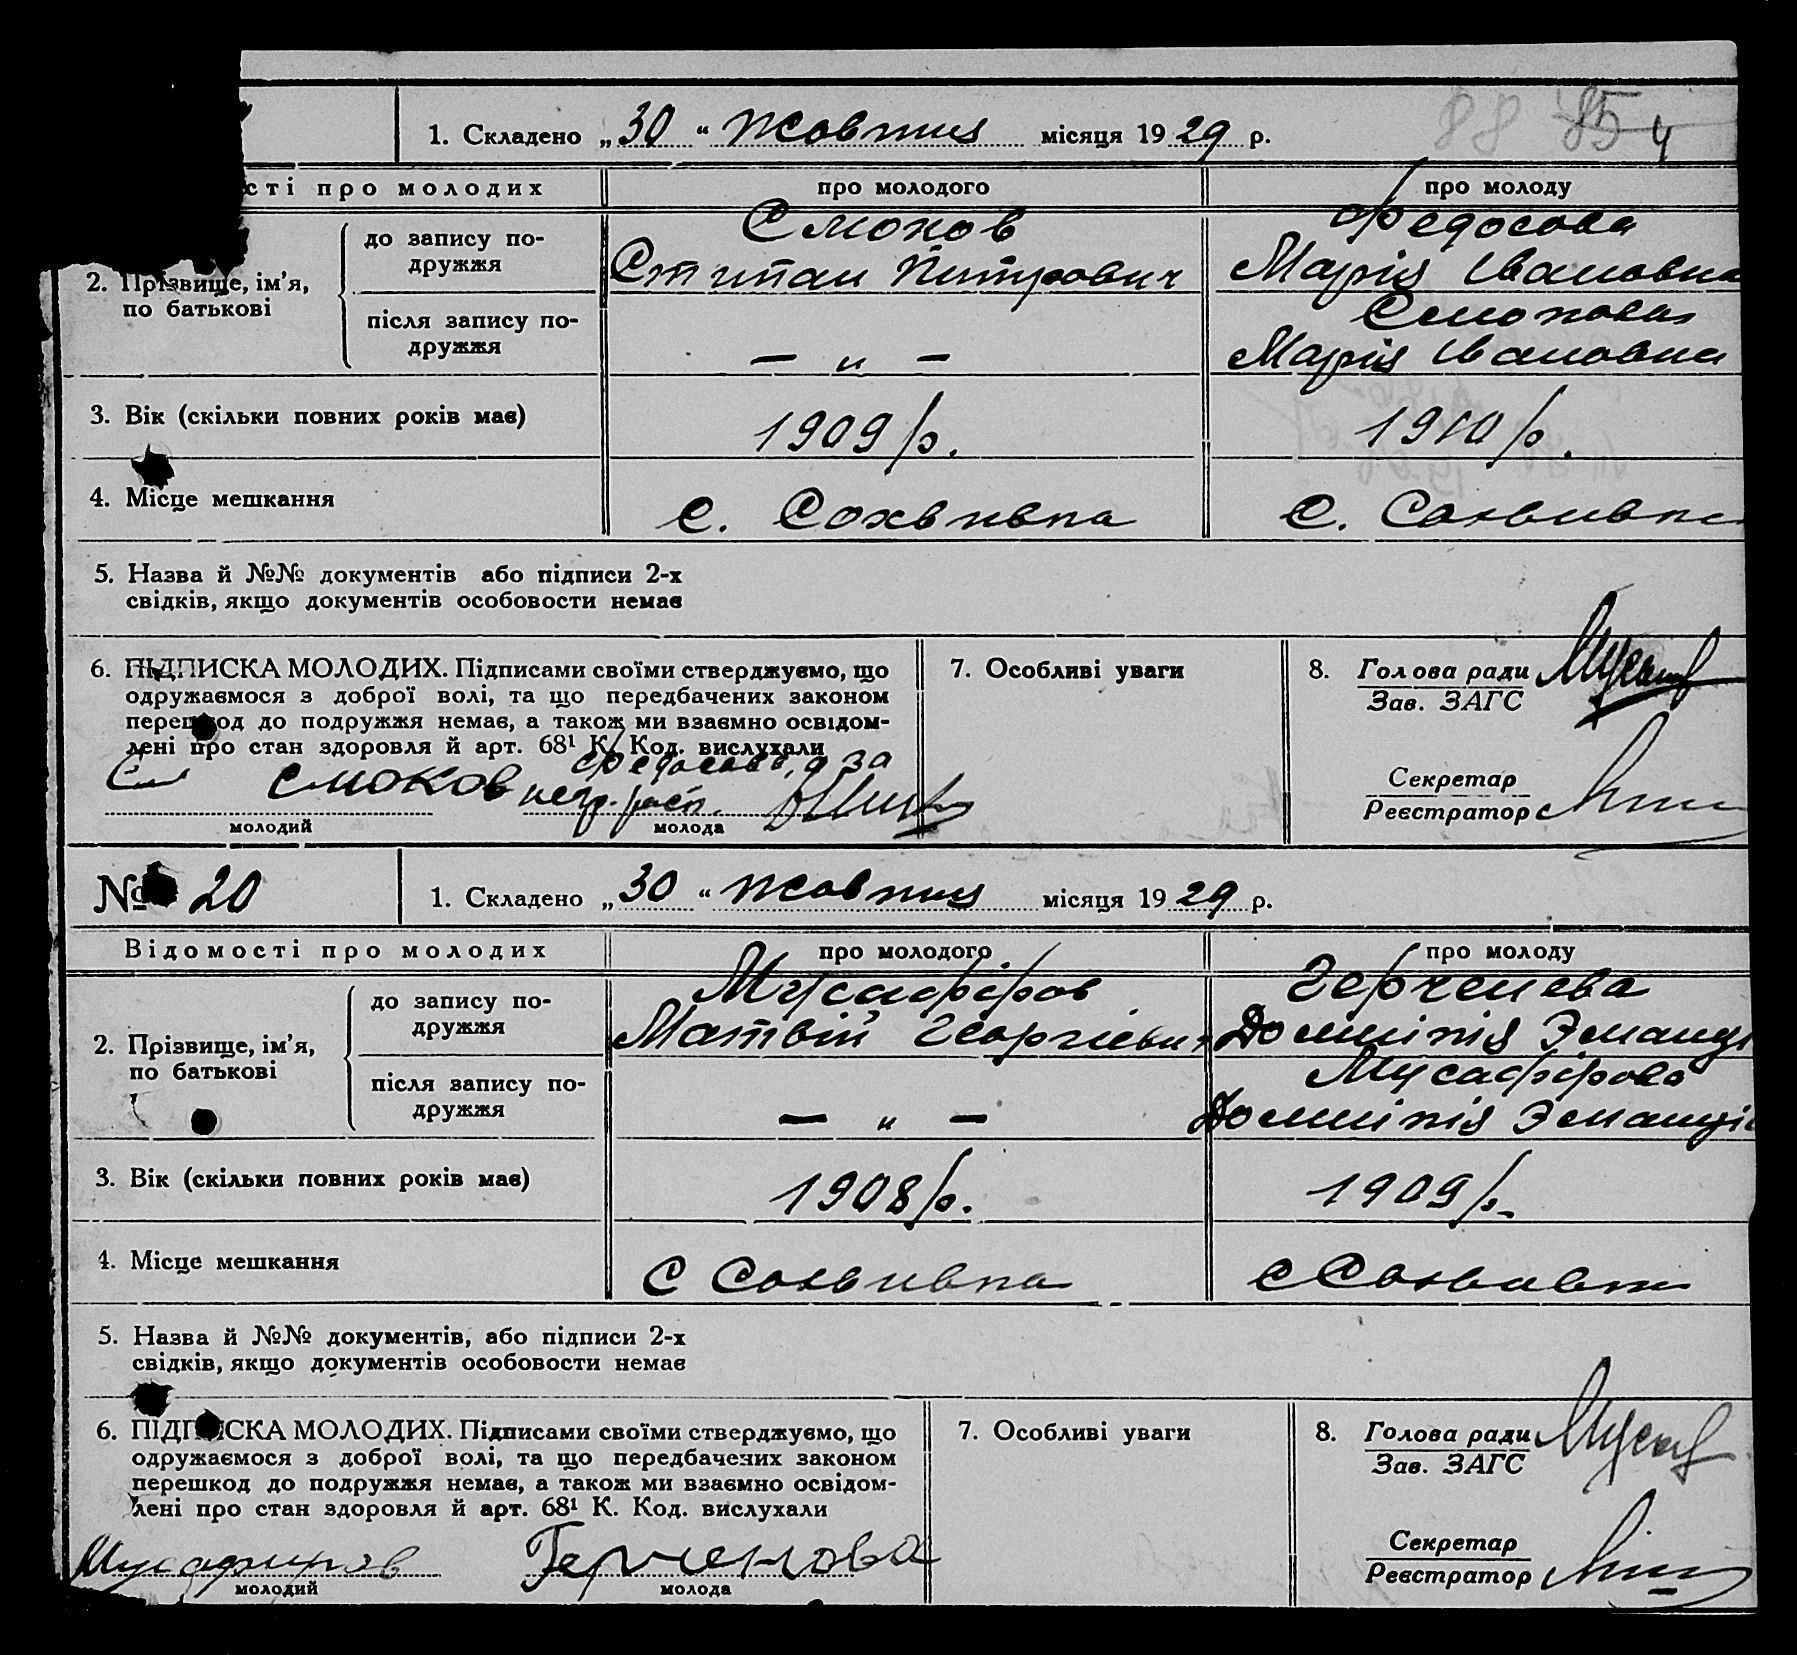 88 85 4
1. Складено „30“ жовтня місяця 1929 р.
сті про молодих про молодого про молоду
2. Прізвище, ім’я, по батькові
до запису подружжя
Смоков
Стипан Питрович
Федосова
Марія Івановна
після запису по-
дружжя
— „ —
Смокова
Марія Івановна
3. Вік (скільки повних років має) 1909 р. 1910 р.
4. Місце мешкання с. Сохвивка с. Сохвивка
5. Назва й №№ документів або підписи 2-х
свідків, якщо документів особовости немає
6. ПІДПИСКА МОЛОДИХ. Підписами своїми стверджуємо, що
одружаємося з доброї волі, та що передбачених законом
перешкод до подружжя немає, а також ми взаємно освідом-
лені про стан здоровля й арт. 68¹ К. Код. вислухали
См Смоков
Федосова, а за
негр. расп.
молодий молода
7. Особливі уваги
8. Голова ради
Зав. ЗАГС
Секретар
Реєстратор
№ 20 1. Складено „30“ жовтня місяця 1929 р.
Відомості про молодих про молодого про молоду
2. Прізвище, ім’я,
по батькові
до запису по-
дружжя
Мусафіров
Матвій Георгієвич
Герченева
Домнікія
після запису по-
дружжя
— „ —
Мусафірова
Домнікія
3. Вік (скільки повних років має) 1908 р. 1909 р.
4. Місце мешкання с Сохвивка с Сохвивка
5. Назва й №№ документів, або підписи 2-х
свідків, якщо документів особовости немає
6. ПІДПИСКА МОЛОДИХ. Підписами своїми стверджуємо, що
одружаємося з доброї волі, та що передбачених законом
перешкод до подружжя немає, а також ми взаємно освідом-
лені про стан здоровля й арт. 68¹ К. Код. вислухали
Мусафиров Герченова
молодий молода
7. Особливі уваги
8. Голова ради
Зав. ЗАГС
Секретар
Реєстратор